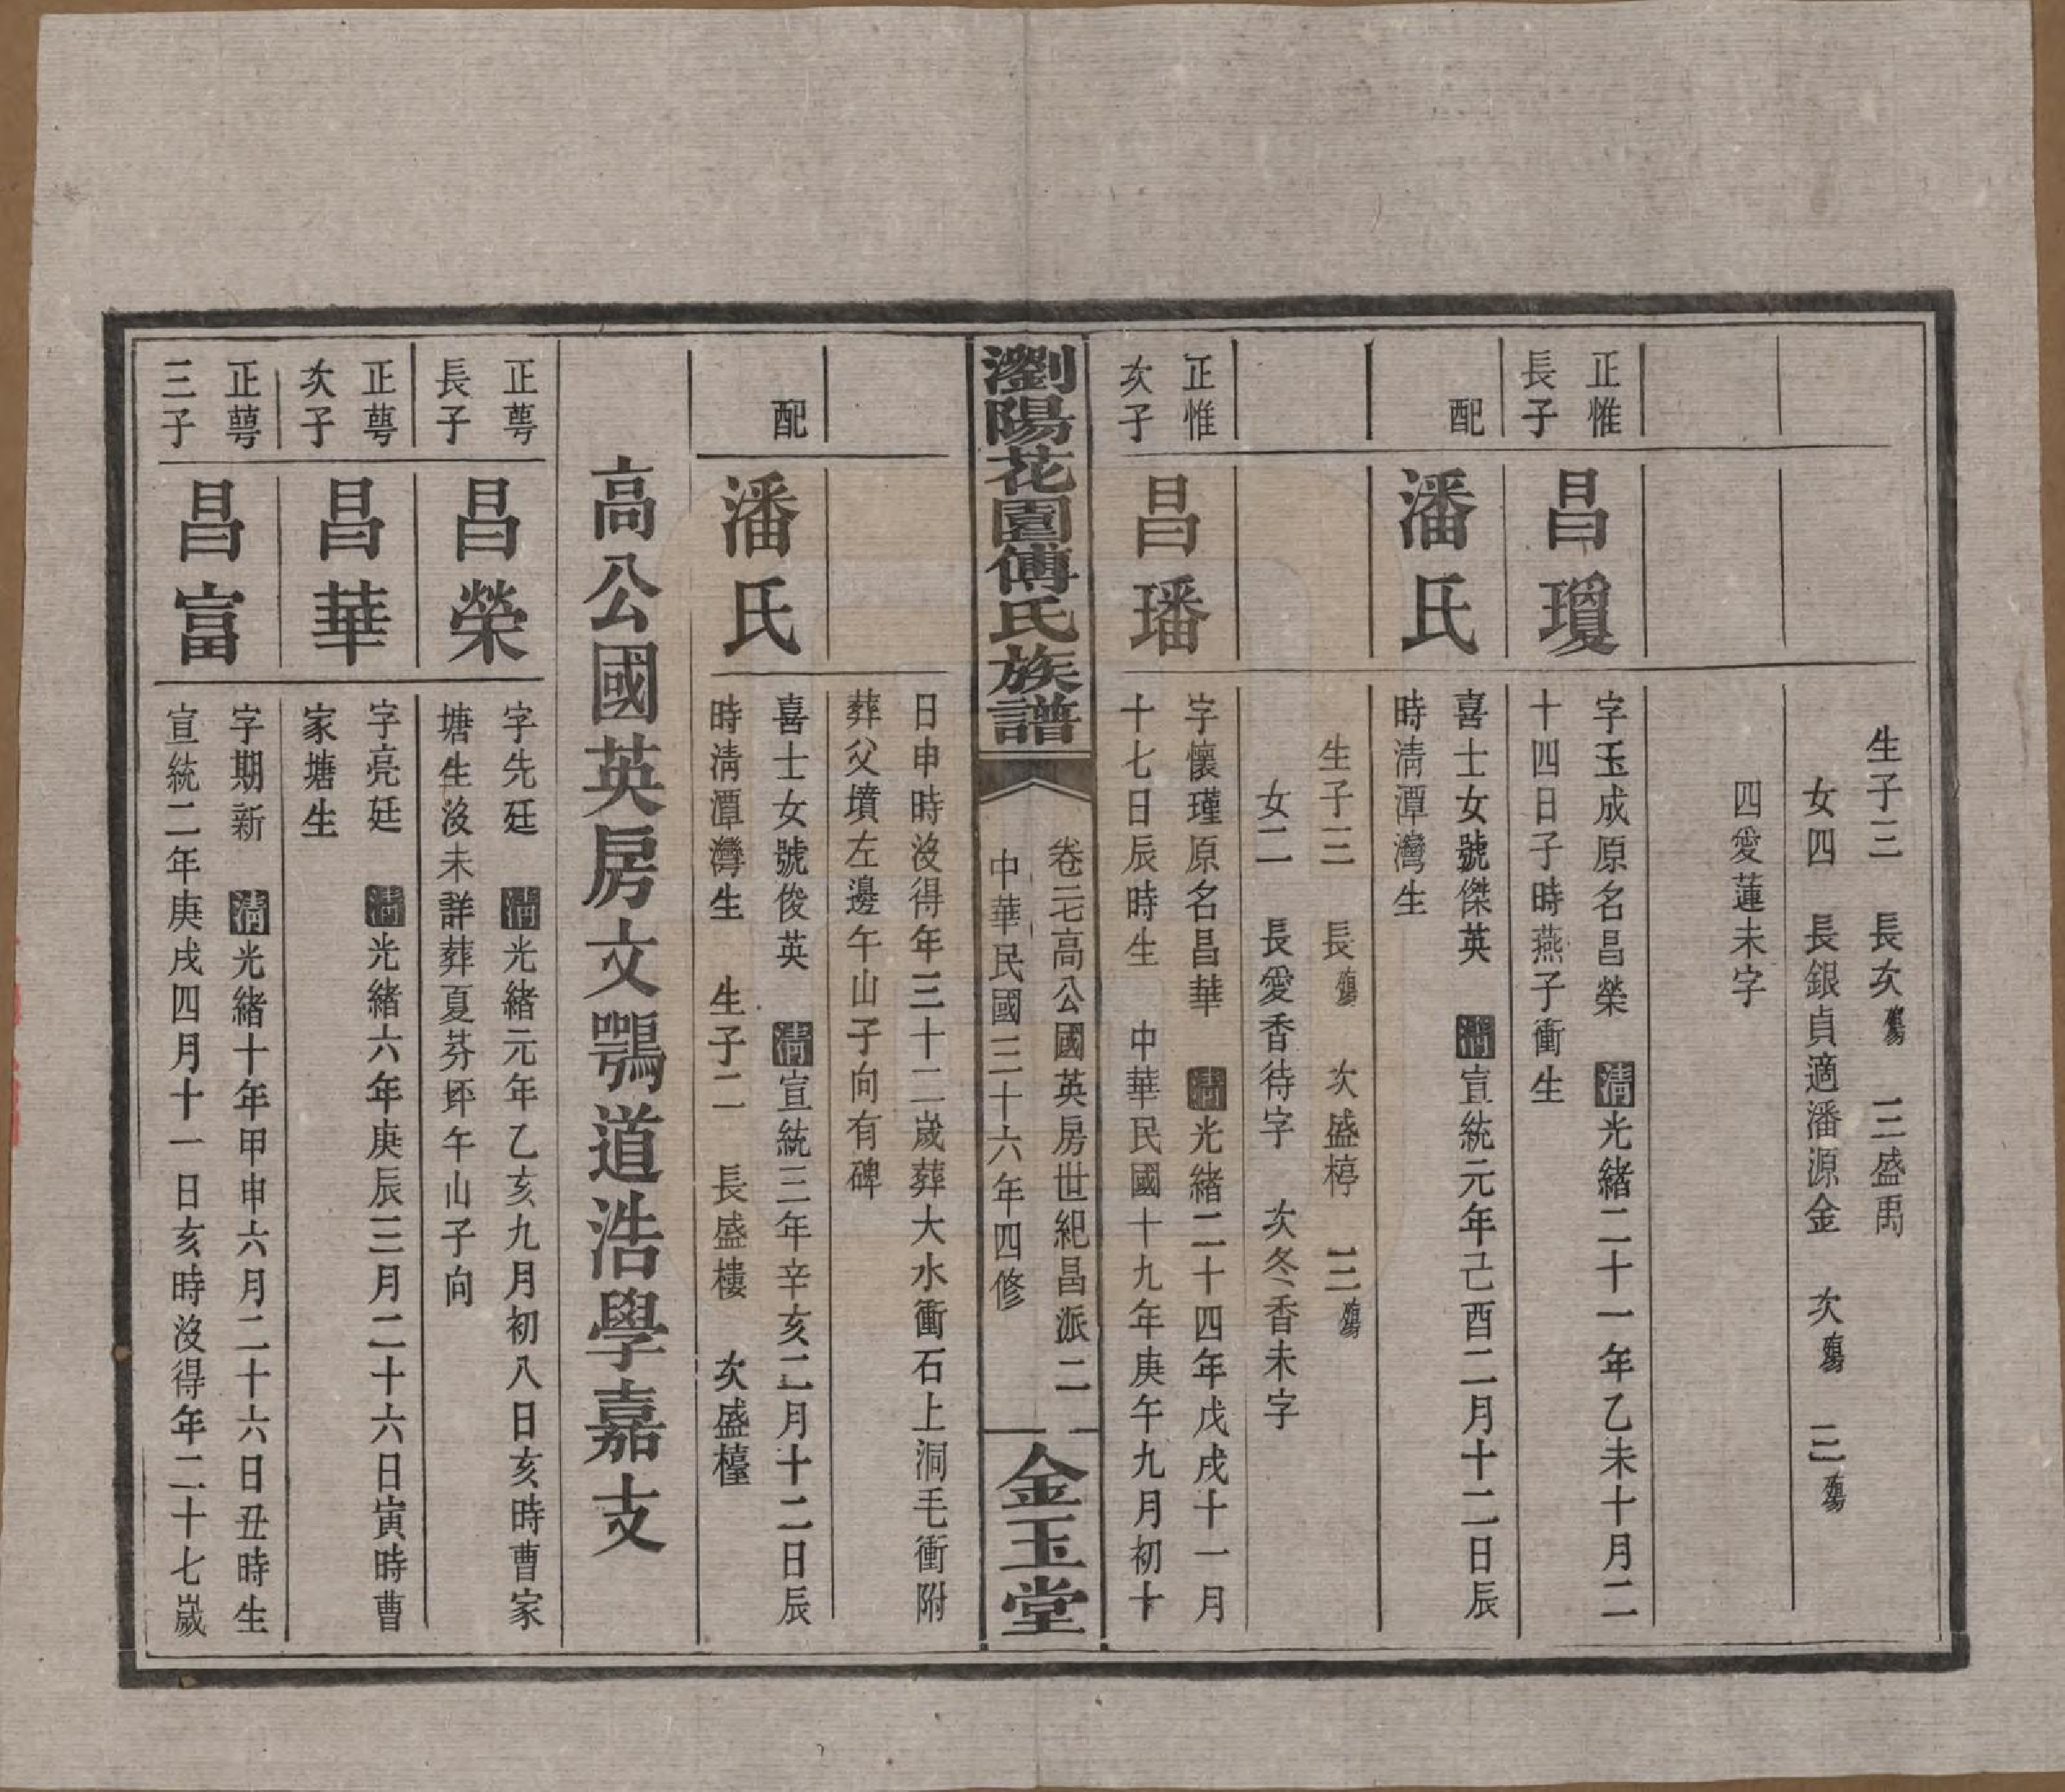 生子三　長次殤　三盛禹
女四　長銀貞適潘源金　次殤　三殤
四愛蓮未字
正惟
長子
昌瓊
字玉成原名昌榮　清光緒二十一年乙未十月二
十四日子時燕子衝生
配
潘氏
喜士女號傑英　清宣統元年己酉二月十二日辰
時清潭灣生
生子三　長殤　次盛椁　三殤
女二　長愛香待字　次冬香未字
正惟
次子
昌璠
字懷瑾原名昌華　清光緒二十四年戊戌十一月
十七日辰時生　中華民國十九年庚午九月初十
瀏陽花園傅氏族譜
卷三七高公國英房世紀昌派二
中華民國三十六年四修
金玉堂
日申時沒得年三十二歲葬大水衝石上洞毛衝附
葬父墳左邊午山子向有碑
配
潘氏
喜士女號俊英　清宣統三年辛亥二月十二日辰
時清潭灣生　生子二　長盛樓　次盛檯
高公國英房文鶚道浩學嘉支
正萼
長子
昌榮
字先廷　清光緒元年乙亥九月初八日亥時曹家
塘生沒未詳葬夏芬坏午山子向
正萼
次子
昌華
字亮廷　清光緒六年庚辰三月二十六日寅時曹
家塘生
正萼
三子
昌富
字期新　清光緒十年甲申六月二十六日丑時生
宣統二年庚戌四月十一日亥時沒得年二十七歲